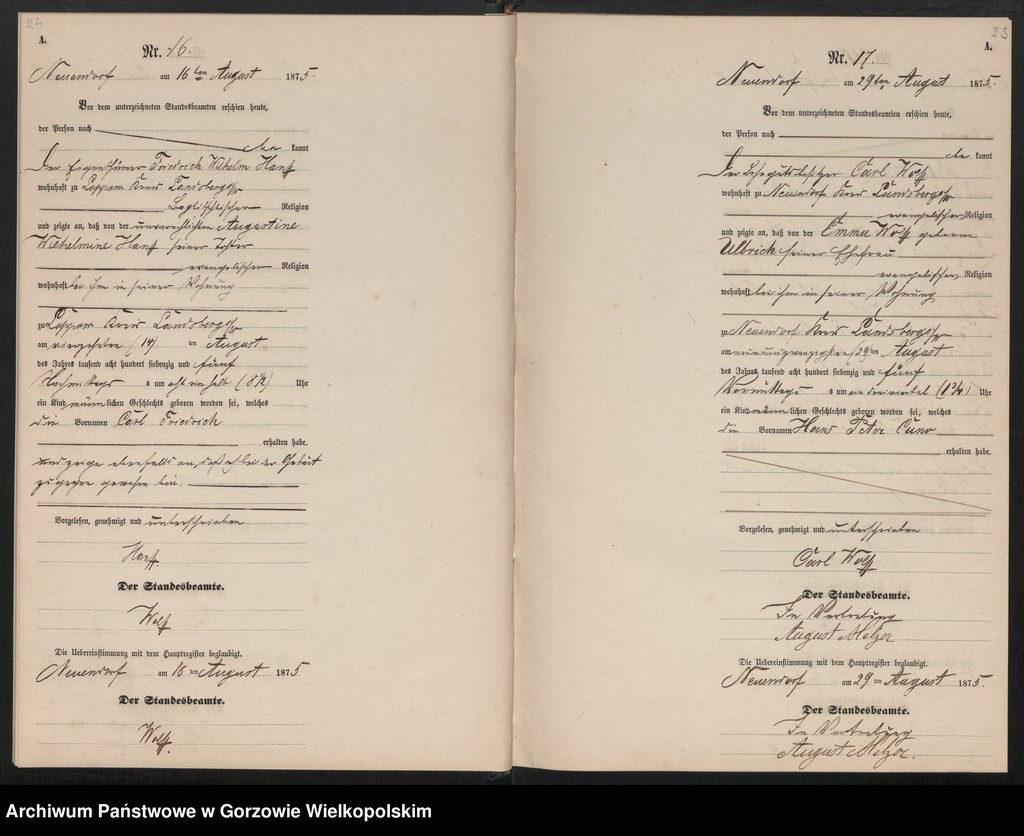 24
A.
Nr. 16.
Neuendorf am 16ten August 1875.
Vor dem unterzeichneten Standesbeamten erschien heute,
der Person nach
be kannt
Der Eigenthümer Friedrich Wilhelm Hanff
wohnhaft zu Loppow Kreis Landsberg a/W
Religion
und zeigte an, daß von der unverehelichten Augustine
Wilhelmine Hanff seiner Tochter
evangelischer Religion
wohnhaft bei ihm in seiner Wohnung
zu Loppow Kreis Landsberg a/W
am vierzehnten (14) ten August
des Jahres tausend acht hundert siebenzig und fünf
Nachmittags s um acht ein halb (8 1/2) Uhr
ein Kind männlichen Geschlechts geboren worden sei, welches
die Vornamen Carl Friedrich
erhalten habe.
und zeige ebenfalls an, daß ich bei der Geburt
zugegen gewesen bin.
Vorgelesen, genehmigt und unterschrieben
Hanff
Der Standesbeamte.
Wolff
Die Uebereinstimmung mit dem Hauptregister beglaubigt.
Neuendorf am 16 ten August 1875
Der Standesbeamte.
Wolff.
25
A.
Nr. 17.
Neuendorf am 29ten August 1875.
Vor dem unterzeichneten Standesbeamten erschien heute,
der Person nach
be kannt
Der Lehngutsbesitzer Carl Wolff
wohnhaft zu Neuendorf Kreis Landsberg a/W
evangelischer Religion
und zeigte an, daß von der Emma Wolff geborene
Ulbrich seiner Ehefrau
evangelischer Religion
wohnhaft bei ihm in seiner Wohnung
zu Neuendorf Kreis Landsberg a/W
am neunundzwanzigsten (29) ten August
des Jahres tausend acht hundert siebenzig und fünf
Vormittags s um ein dreiviertel (1 3/4) Uhr
ein Kind männlichen Geschlechts geboren worden sei, welches
die Vornamen Hans Peter Cuno
erhalten habe.
Vorgelesen, genehmigt und unterschrieben
Carl Wolff
Der Standesbeamte.
In Vertretung
August Melzer
Die Uebereinstimmung mit dem Hauptregister beglaubigt.
Neuendorf am 29 ten August 1875.
Der Standesbeamte.
In Vertretung
August Melzer.
Archiwum Państwowe w Gorzowie Wielkopolskim